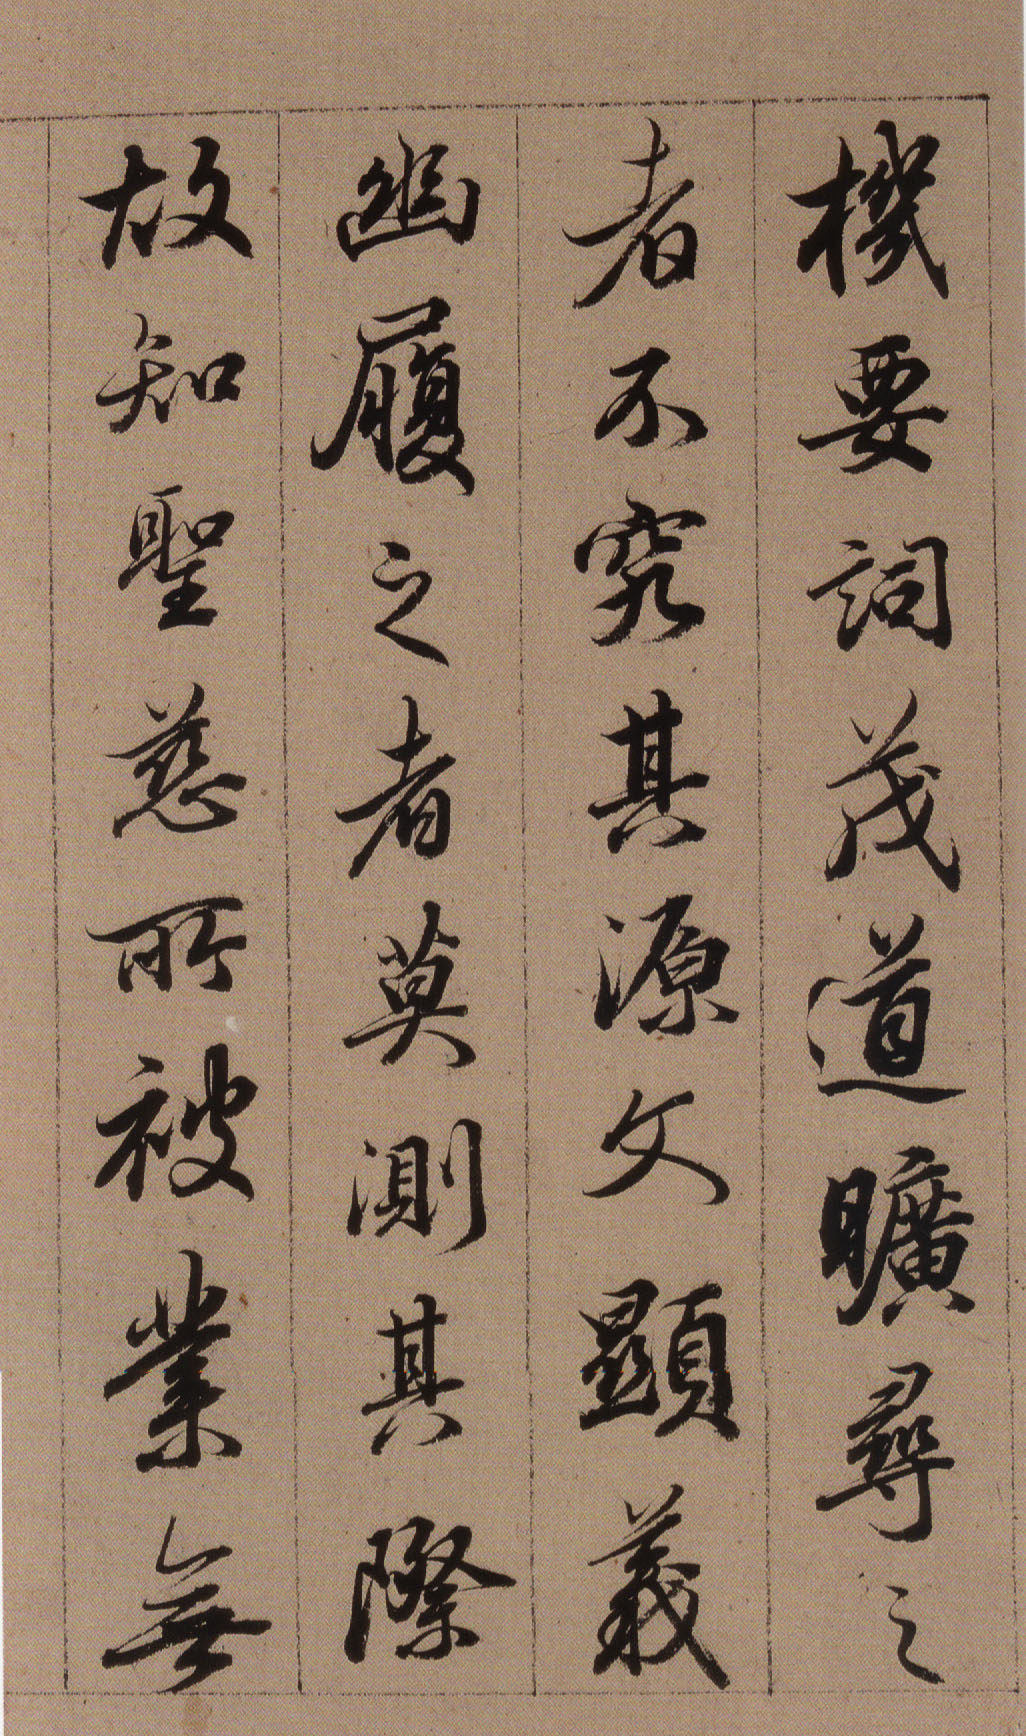 機要詞茂道曠尋之
者不究其源文顯義
幽履之者莫測其際
故知聖慈所被業無